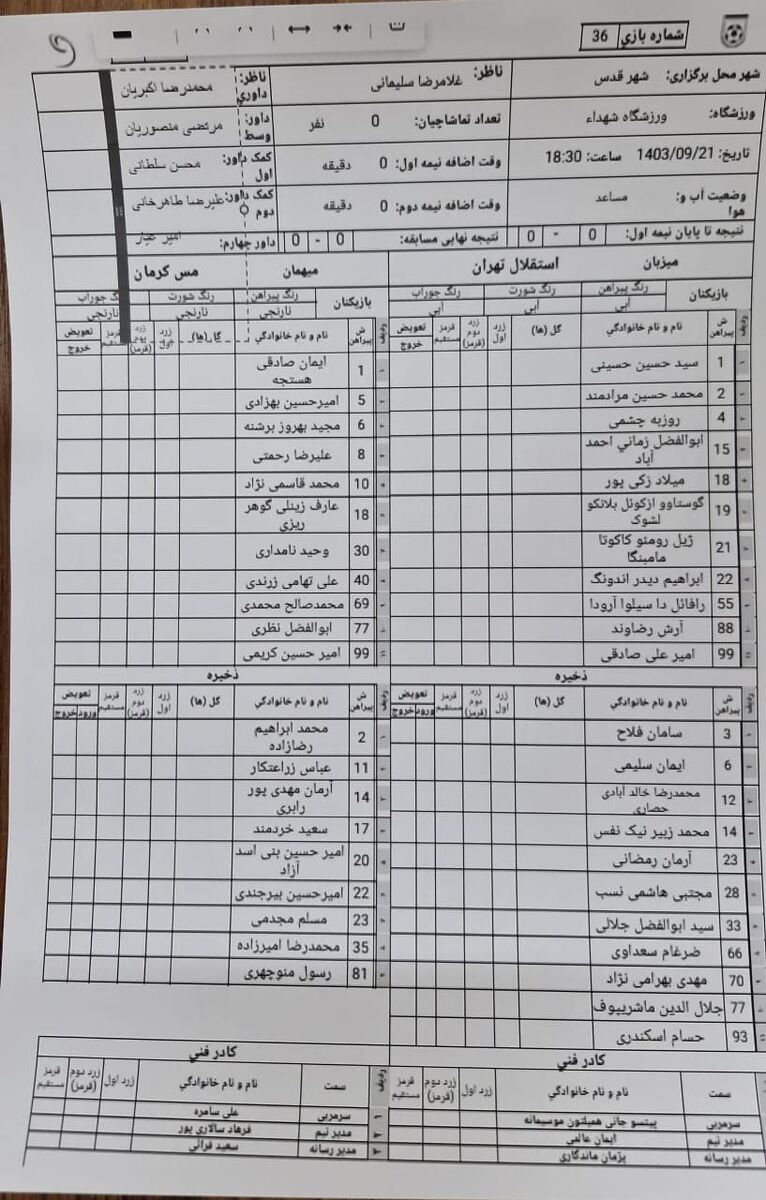 شماره بازي 36
شهر محل برگزاری: شهر قدس
ناظر: غلامرضا سلیمانی
ناظر داوري: محمدرضا اکبریان
ورزشگاه: ورزشگاه شهداء
تعداد تماشاچیان: 0 نفر
داور وسط: مرتضی منصوریان
تاریخ: 1403/09/21 ساعت: 18:30
وقت اضافه نیمه اول: 0 دقیقه
کمک داور اول: محسن سلطانی
وضعیت آب و هوا: مساعد
وقت اضافه نیمه دوم: 0 دقیقه
کمک داور دوم: علیرضا طاهرخانی
نتیجه تا پایان نیمه اول: 0 - 0
نتیجه نهایی مسابقه: 0 - 0
داور چهارم: امیر عیار
میزبان استقلال تهران
بازیکنان
رنگ پیراهن رنگ شورت رنگ جوراب
آبی آبی آبی
ردیف ش پیراهن نام و نام خانوادگي گل (ها) زرد اول زرد دوم (قرمز) قرمز مستقیم تعویض خروج
1 سید حسین حسینی
2 محمد حسین مرادمند
4 روزبه چشمی
15 ابوالفضل زماني احمد آباد
18 میلاد زکی پور
19 گوستاوو ازکوئل بلانکو لشوک
21 ژیل رومئو کاکوتا مامبنگا
22 ابراهیم دیدر اندونگ
55 رافائل دا سیلوا آرودا
88 آرش رضاوند
99 امیر علی صادقی
ذخیره
ردیف ش پیراهن نام و نام خانوادگي گل (ها) زرد اول زرد دوم (قرمز) قرمز مستقیم تعویض ورود خروج
3 سامان فلاح
6 ایمان سلیمی
12 محمدرضا خالد آبادی حصاری
14 محمد زبیر نیک نفس
23 آرمان رمضانی
28 مجتبی هاشمی نسب
33 سید ابوالفضل جلالی
66 ضرغام سعداوی
70 مهدی بهرامی نژاد
77 جلال الدین ماشریپوف
93 حسام اسکندری
کادر فني
سمت نام و نام خانوادگي زرد اول زرد دوم (قرمز) قرمز مستقیم
سرمربی پیتسو جانی همیلتون موسیمانه
مدیر تیم ایمان عالمی
مدیر رسانه پژمان ماندگاری
میهمان مس کرمان
بازیکنان
رنگ پیراهن رنگ شورت رنگ جوراب
نارنجی نارنجی نارنجی
ردیف ش پیراهن نام و نام خانوادگي گل (ها) زرد اول زرد دوم (قرمز) قرمز مستقیم تعویض خروج
1 ایمان صادقی هستجه
5 امیرحسین بهزادی
6 مجید بهروز برشنه
8 علیرضا رحمتی
10 محمد قاسمی نژاد
18 عارف زینلی گوهر ریزي
30 وحید نامداری
40 علی تهامی زرندی
69 محمدصالح محمدی
77 ابوالفضل نظری
99 امیر حسین کریمی
ذخیره
ردیف ش پیراهن نام و نام خانوادگي گل (ها) زرد اول زرد دوم (قرمز) قرمز مستقیم تعویض ورود خروج
2 محمد ابراهیم رضازاده
11 عباس زراعتکار
14 آرمان مهدی پور رابری
17 سعید خردمند
20 امیر حسین بنی اسد آزاد
22 امیرحسین بیرجندی
23 مسلم مجدمی
35 محمدرضا امیرزاده
81 رسول منوچهری
کادر فني
ردیف سمت نام و نام خانوادگي زرد اول زرد دوم (قرمز) قرمز مستقیم
۱ سرمربی علی سامره
۲ مدیر تیم فرهاد سالاری پور
۳ مدیر رسانه سعید قرائی